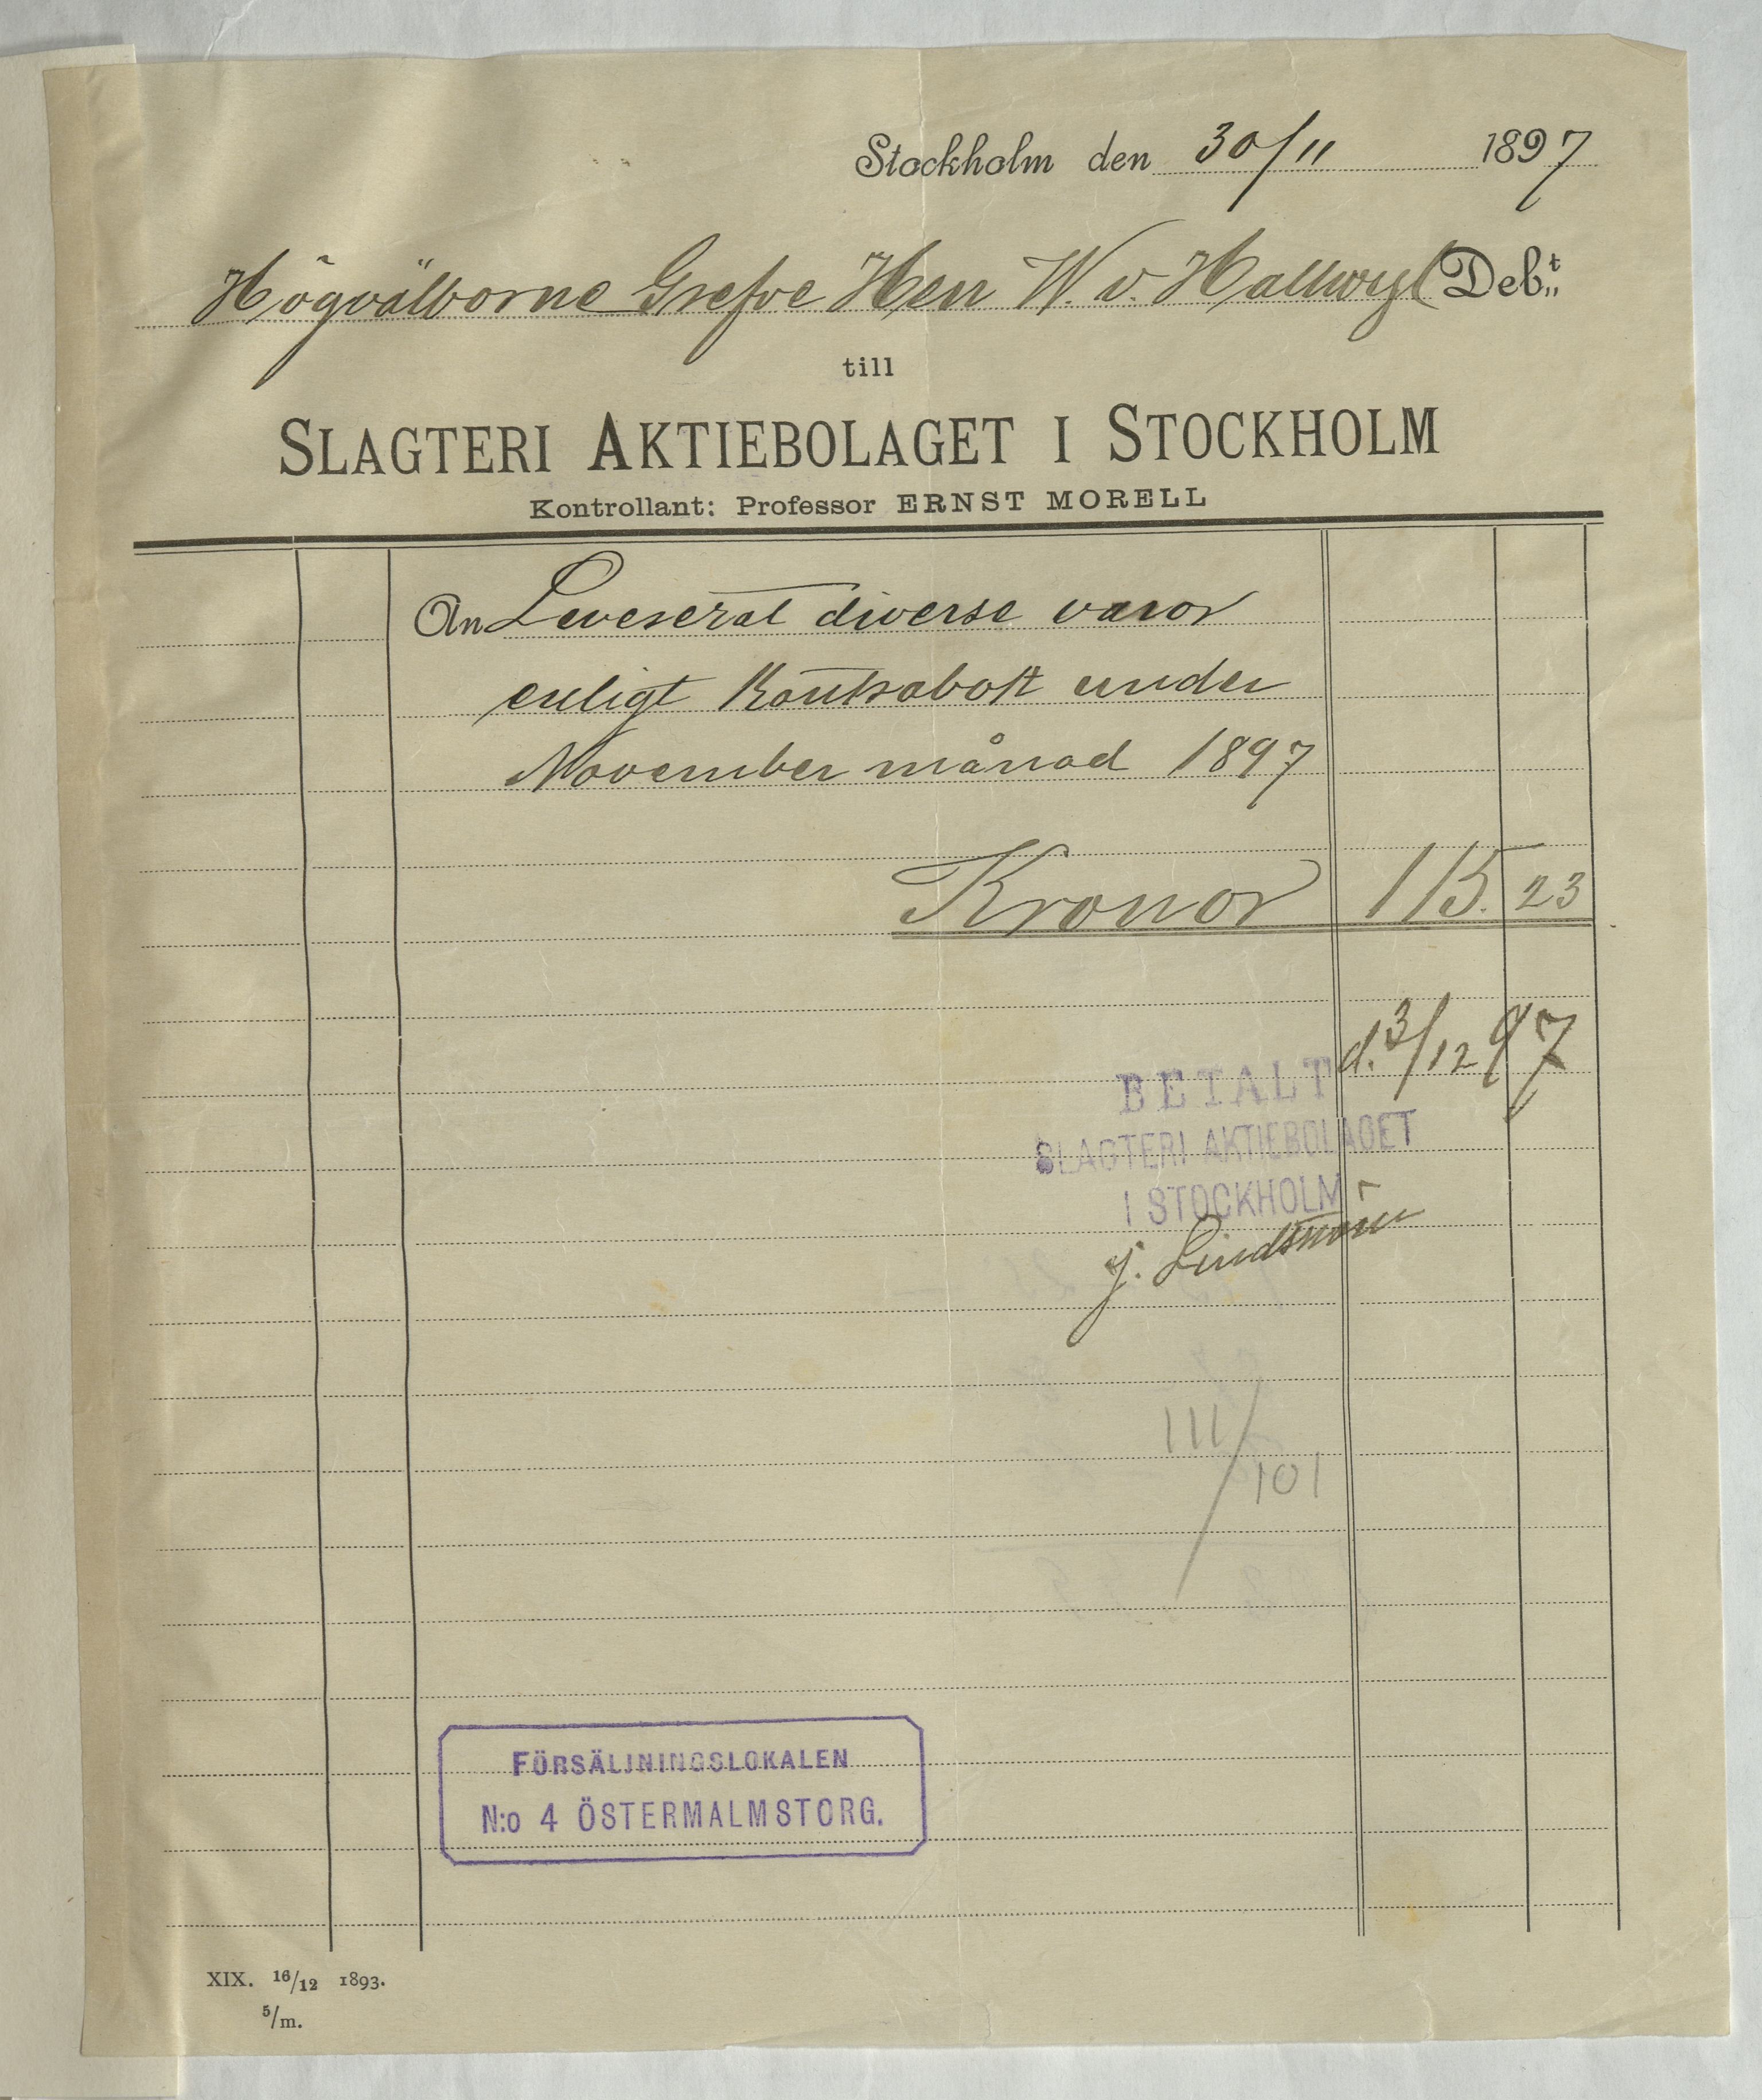 Stockholm den 30/11 1897
Högvälborne Grefve Herr W. v. Hallwyl Deb:t
till
SLAGTERI AKTIEBOLAGET I STOCKHOLM
Kontrollant: Professor ERNST MORELL
An Levererat diverse varor
enligt Kontrabok under
November månad 1897
Kronor 115. 23
d. 3/12 97
BETALT
SLAGTERI AKTIEBOLAGET
I STOCKHOLM
J. Lindström
111/101
FÖRSÄLJNINGSLOKALEN
N:o 4 ÖSTERMALMSTORG.
XIX. 16/12 1893.
5/m.